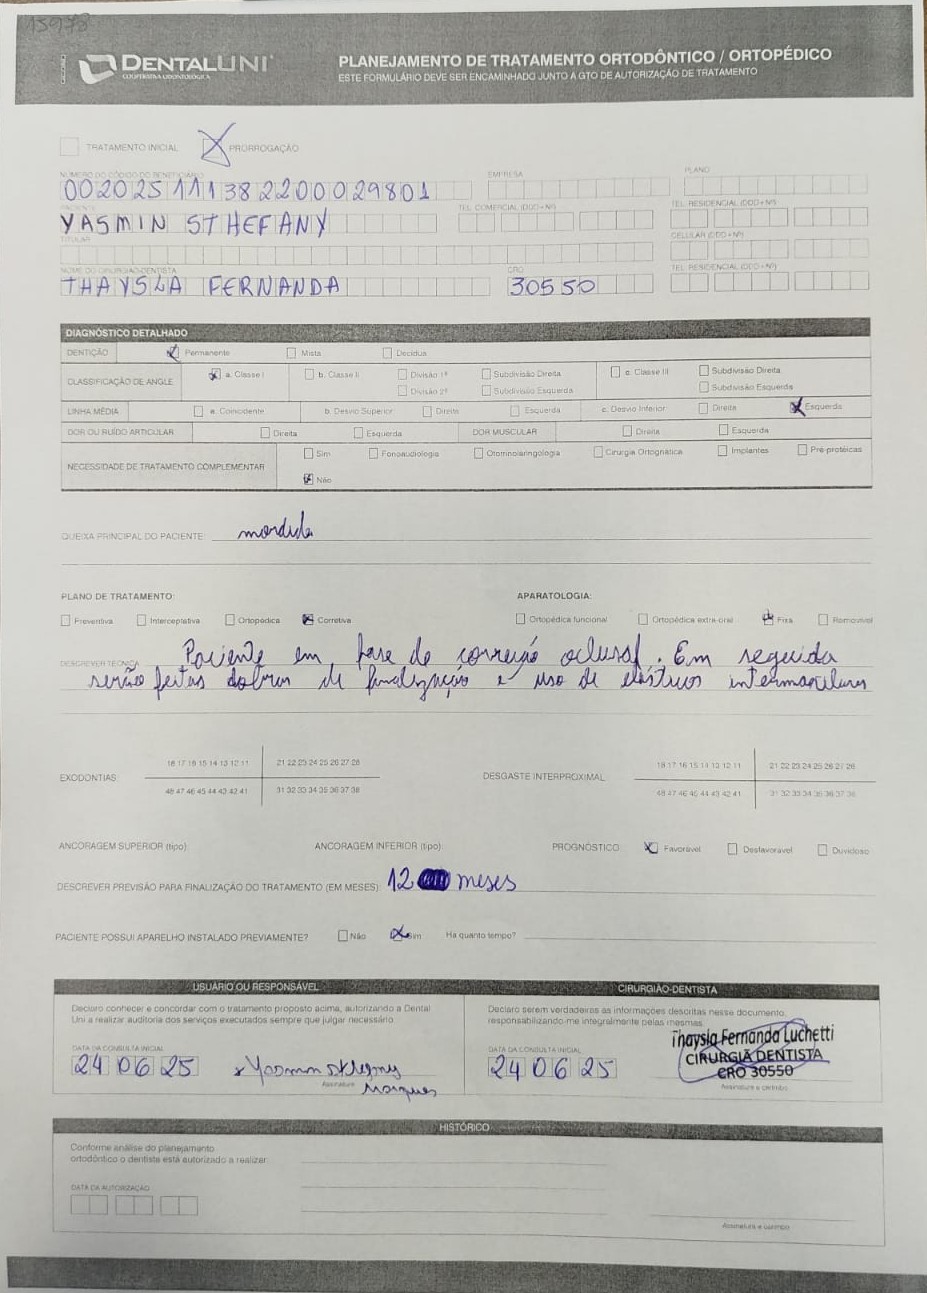 15978
DENTALUNI
COOPERATIVA ODONTOLÓGICA
PLANEJAMENTO DE TRATAMENTO ORTODÔNTICO / ORTOPÉDICO
ESTE FORMULÁRIO DEVE SER ENCAMINHADO JUNTO A GTO DE AUTORIZAÇÃO DE TRATAMENTO
TRATAMENTO INICIAL PRORROGAÇÃO
NÚMERO DO CÓDIGO DO BENEFICIÁRIO EMPRESA PLANO
002025111382200029801
PACIENTE TEL. COMERCIAL (DDD+Nº) TEL. RESIDENCIAL (DDD+Nº)
YASMIN STHEFANY
TITULAR CELULAR (DDD+Nº)
NOME DO CIRURGIÃO-DENTISTA CRO TEL. RESIDENCIAL (DDD+Nº)
THAYSLA FERNANDA 30550
DIAGNÓSTICO DETALHADO
DENTIÇÃO Permanente Mista Decídua
CLASSIFICAÇÃO DE ANGLE a. Classe I b. Classe II Divisão 1ª Subdivisão Direita c. Classe III Subdivisão Direita
Divisão 2ª Subdivisão Esquerda Subdivisão Esquerda
LINHA MÉDIA a. Coincidente b. Desvio Superior Direita Esquerda c. Desvio Inferior Direita Esquerda
DOR OU RUÍDO ARTICULAR Direita Esquerda DOR MUSCULAR Direita Esquerda
NECESSIDADE DE TRATAMENTO COMPLEMENTAR Sim Fonoaudiologia Otorrinolaringologia Cirurgia Ortognática Implantes Pré-protéticas
Não
QUEIXA PRINCIPAL DO PACIENTE: mordida
PLANO DE TRATAMENTO: APARATOLOGIA:
Preventiva Interceptativa Ortopédica Corretiva Ortopédica funcional Ortopédica extra-oral Fixa Removível
DESCREVER TÉCNICA Paciente em fase de correção oclusal. Em seguida
serão feitas dobras de finalização e uso de elásticos intermaxilares
EXODONTIAS: 18 17 16 15 14 13 12 11 21 22 23 24 25 26 27 28
48 47 46 45 44 43 42 41 31 32 33 34 35 36 37 38
DESGASTE INTERPROXIMAL 18 17 16 15 14 13 12 11 21 22 23 24 25 26 27 28
48 47 46 45 44 43 42 41 31 32 33 34 35 36 37 38
ANCORAGEM SUPERIOR (tipo): ANCORAGEM INFERIOR (tipo): PROGNÓSTICO: Favorável Desfavorável Duvidoso
DESCREVER PREVISÃO PARA FINALIZAÇÃO DO TRATAMENTO (EM MESES): 12 meses
PACIENTE POSSUI APARELHO INSTALADO PREVIAMENTE? Não Sim Há quanto tempo?
USUÁRIO OU RESPONSÁVEL
Declaro conhecer e concordar com o tratamento proposto acima, autorizando a Dental
Uni a realizar auditoria dos serviços executados sempre que julgar necessário.
DATA DA CONSULTA INICIAL
24 06 25 Yasmin Sthefany
Marques
Assinatura
CIRURGIÃO-DENTISTA
Declaro serem verdadeiras as informações descritas nesse documento,
responsabilizando-me integralmente pelas mesmas.
DATA DA CONSULTA INICIAL
24 06 25
Thaysla Fernanda Luchetti
CIRURGIÃ DENTISTA
CRO 30550
Assinatura e carimbo
HISTÓRICO
Conforme análise do planejamento
ortodôntico o dentista está autorizado a realizar:
DATA DA AUTORIZAÇÃO
Assinatura e carimbo